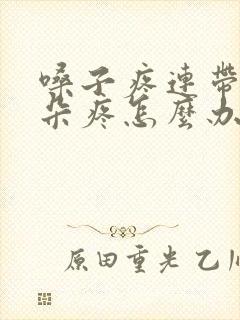 嗓子疼連帶
朵疼怎麼办
原田重光 乙